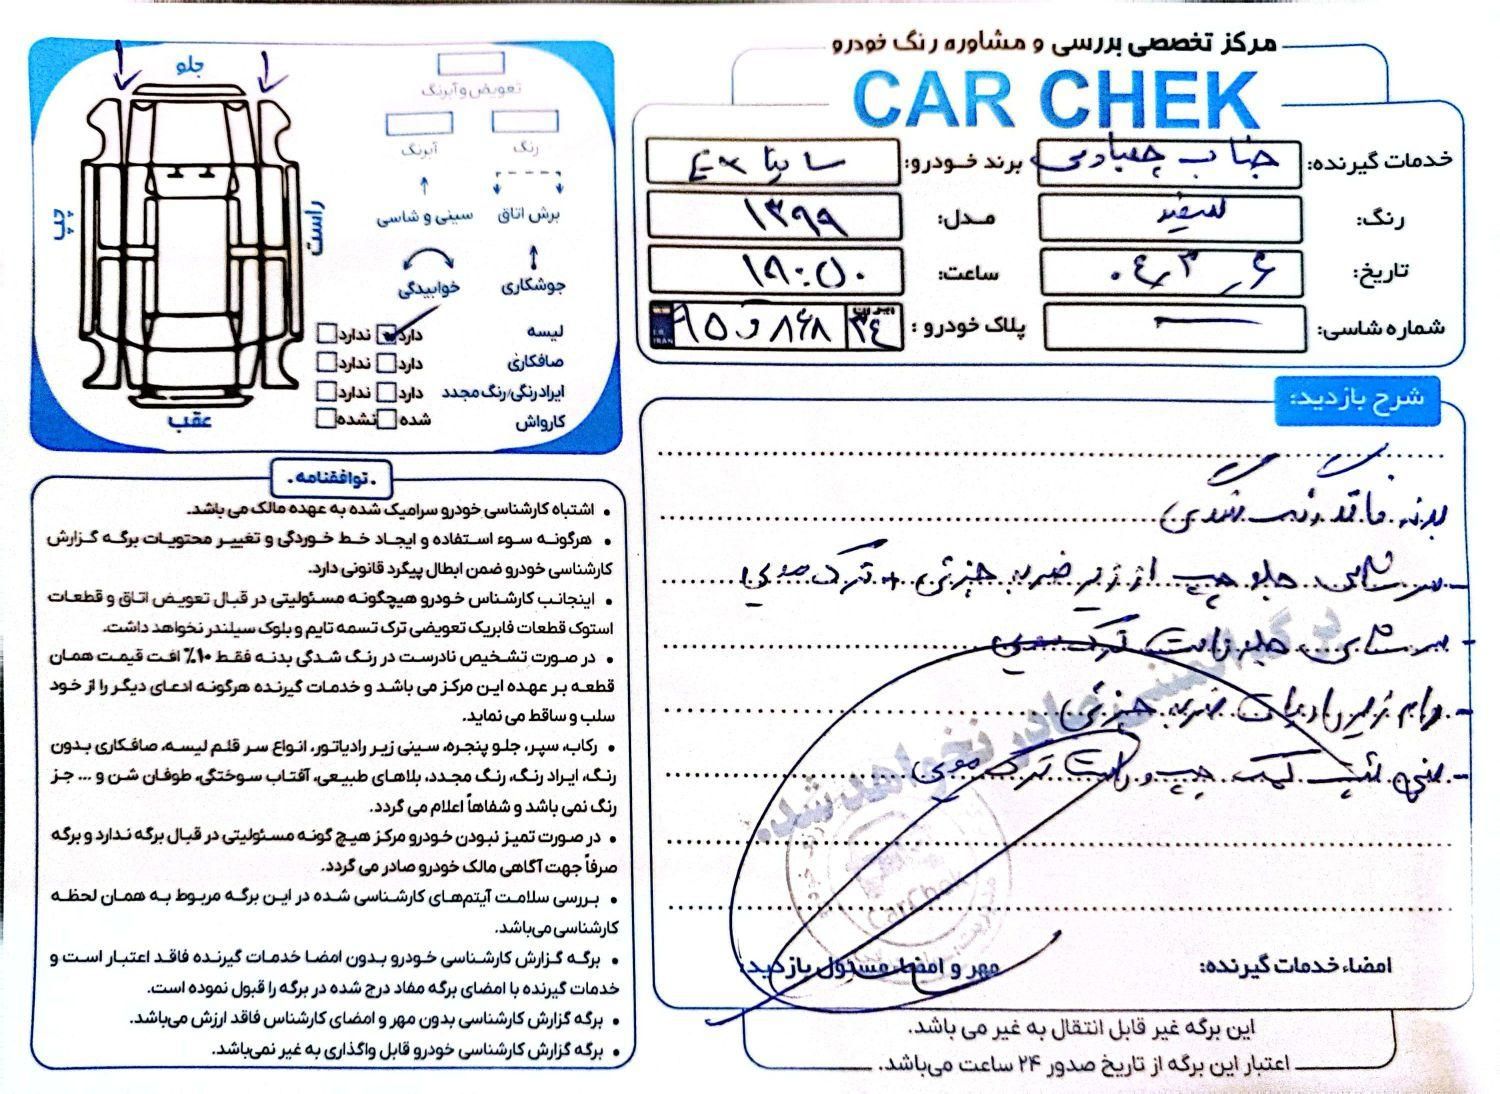 مرکز تخصصی بررسی و مشاوره رنگ خودرو
CAR CHEK
خدمات گیرنده: جناب
برند خودرو: ساینا EX
رنگ: سفید
مدل: ۱۳۹۹
تاریخ: ۰۴٫۳٫۶
ساعت: ۱۹:۵۰
شماره شاسی: —
پلاک خودرو:
I.R. IRAN
شرح بازدید:
بدنه فاقد رنگ شدگی
- سرشاسی جلو چپ از زیر ضربه جزئی + ترک مویی
- سرشاسی جلو راست ترک مویی
- رام زیر رادیات ضربه جزئی
- سینی پشت کمک چپ و راست ترک مویی
برگه المثنی صادر نخواهد شد.
CarChek
امضاء خدمات گیرنده:
مهر و امضاء مسئول بازدید:
این برگه غیر قابل انتقال به غیر می باشد.
اعتبار این برگه از تاریخ صدور ۲۴ ساعت می‌باشد.
جلو
چپ
راست
عقب
تعویض و آبرنگ
رنگ
آبرنگ
برش اتاق
سینی و شاسی
جوشکاری
خوابیدگی
لیسه دارد ندارد
صافکاری دارد ندارد
ایراد رنگی/رنگ مجدد دارد ندارد
کارواش شده نشده
.توافقنامه.
• اشتباه کارشناسی خودرو سرامیک شده به عهده مالک می باشد.
• هرگونه سوء استفاده و ایجاد خط خوردگی و تغییر محتویات برگه گزارش
کارشناسی خودرو ضمن ابطال پیگرد قانونی دارد.
• اینجانب کارشناس خودرو هیچگونه مسئولیتی در قبال تعویض اتاق و قطعات
استوک قطعات فابریک تعویضی ترک تسمه تایم و بلوک سیلندر نخواهد داشت.
• در صورت تشخیص نادرست در رنگ شدگی بدنه فقط ۱۰٪ افت قیمت همان
قطعه بر عهده این مرکز می باشد و خدمات گیرنده هرگونه ادعای دیگر را از خود
سلب و ساقط می نماید.
• رکاب، سپر، جلو پنجره، سینی زیر رادیاتور، انواع سر قلم لیسه، صافکاری بدون
رنگ، ایراد رنگ، رنگ مجدد، بلاهای طبیعی، آفتاب سوختگی، طوفان شن و ... جز
رنگ نمی باشد و شفاهاً اعلام می گردد.
• در صورت تمیز نبودن خودرو مرکز هیچ گونه مسئولیتی در قبال برگه ندارد و برگه
صرفاً جهت آگاهی مالک خودرو صادر می گردد.
• بررسی سلامت آیتم‌های کارشناسی شده در این برگه مربوط به همان لحظه
کارشناسی می‌باشد.
• برگه گزارش کارشناسی خودرو بدون امضا خدمات گیرنده فاقد اعتبار است و
خدمات گیرنده با امضای برگه مفاد درج شده در برگه را قبول نموده است.
• برگه گزارش کارشناسی بدون مهر و امضای کارشناس فاقد ارزش می‌باشد.
• برگه گزارش کارشناسی خودرو قابل واگذاری به غیر نمی‌باشد.